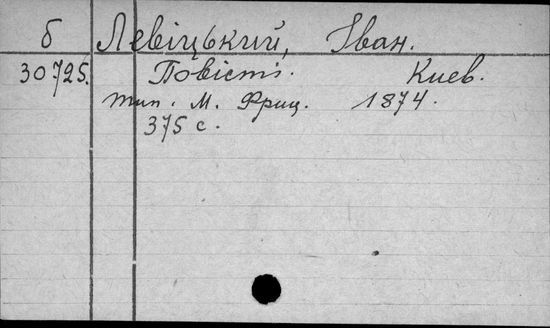 б Левіцький, Іван.
30725. Повісті. Киев.
тип. М. Фриц. 1874.
375 с.